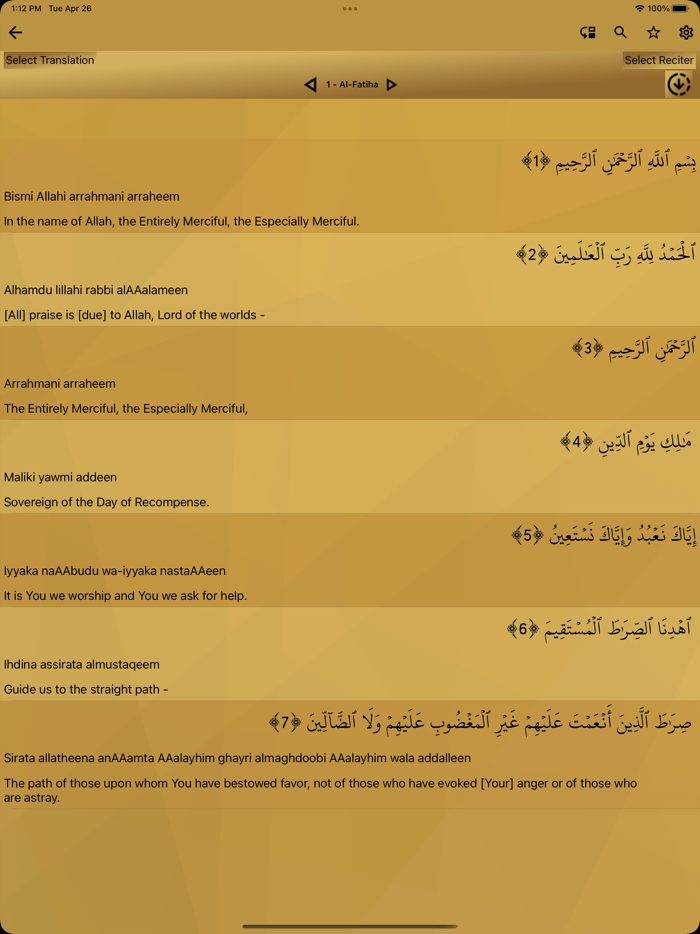 1:12 PM Tue Apr 26
100%
Select Translation
Select Reciter
1 - Al-Fatiha
بِسْمِ ٱللَّهِ ٱلرَّحْمَٰنِ ٱلرَّحِيمِ ﴿1﴾
Bismi Allahi arrahmani arraheem
In the name of Allah, the Entirely Merciful, the Especially Merciful.
ٱلْحَمْدُ لِلَّهِ رَبِّ ٱلْعَٰلَمِينَ ﴿2﴾
Alhamdu lillahi rabbi alAAalameen
[All] praise is [due] to Allah, Lord of the worlds -
ٱلرَّحْمَٰنِ ٱلرَّحِيمِ ﴿3﴾
Arrahmani arraheem
The Entirely Merciful, the Especially Merciful,
مَٰلِكِ يَوْمِ ٱلدِّينِ ﴿4﴾
Maliki yawmi addeen
Sovereign of the Day of Recompense.
إِيَّاكَ نَعْبُدُ وَإِيَّاكَ نَسْتَعِينُ ﴿5﴾
Iyyaka naAAbudu wa-iyyaka nastaAAeen
It is You we worship and You we ask for help.
ٱهْدِنَا ٱلصِّرَٰطَ ٱلْمُسْتَقِيمَ ﴿6﴾
Ihdina assirata almustaqeem
Guide us to the straight path -
صِرَٰطَ ٱلَّذِينَ أَنْعَمْتَ عَلَيْهِمْ غَيْرِ ٱلْمَغْضُوبِ عَلَيْهِمْ وَلَا ٱلضَّآلِّينَ ﴿7﴾
Sirata allatheena anAAamta AAalayhim ghayri almaghdoobi AAalayhim wala addalleen
The path of those upon whom You have bestowed favor, not of those who have evoked [Your] anger or of those who
are astray.